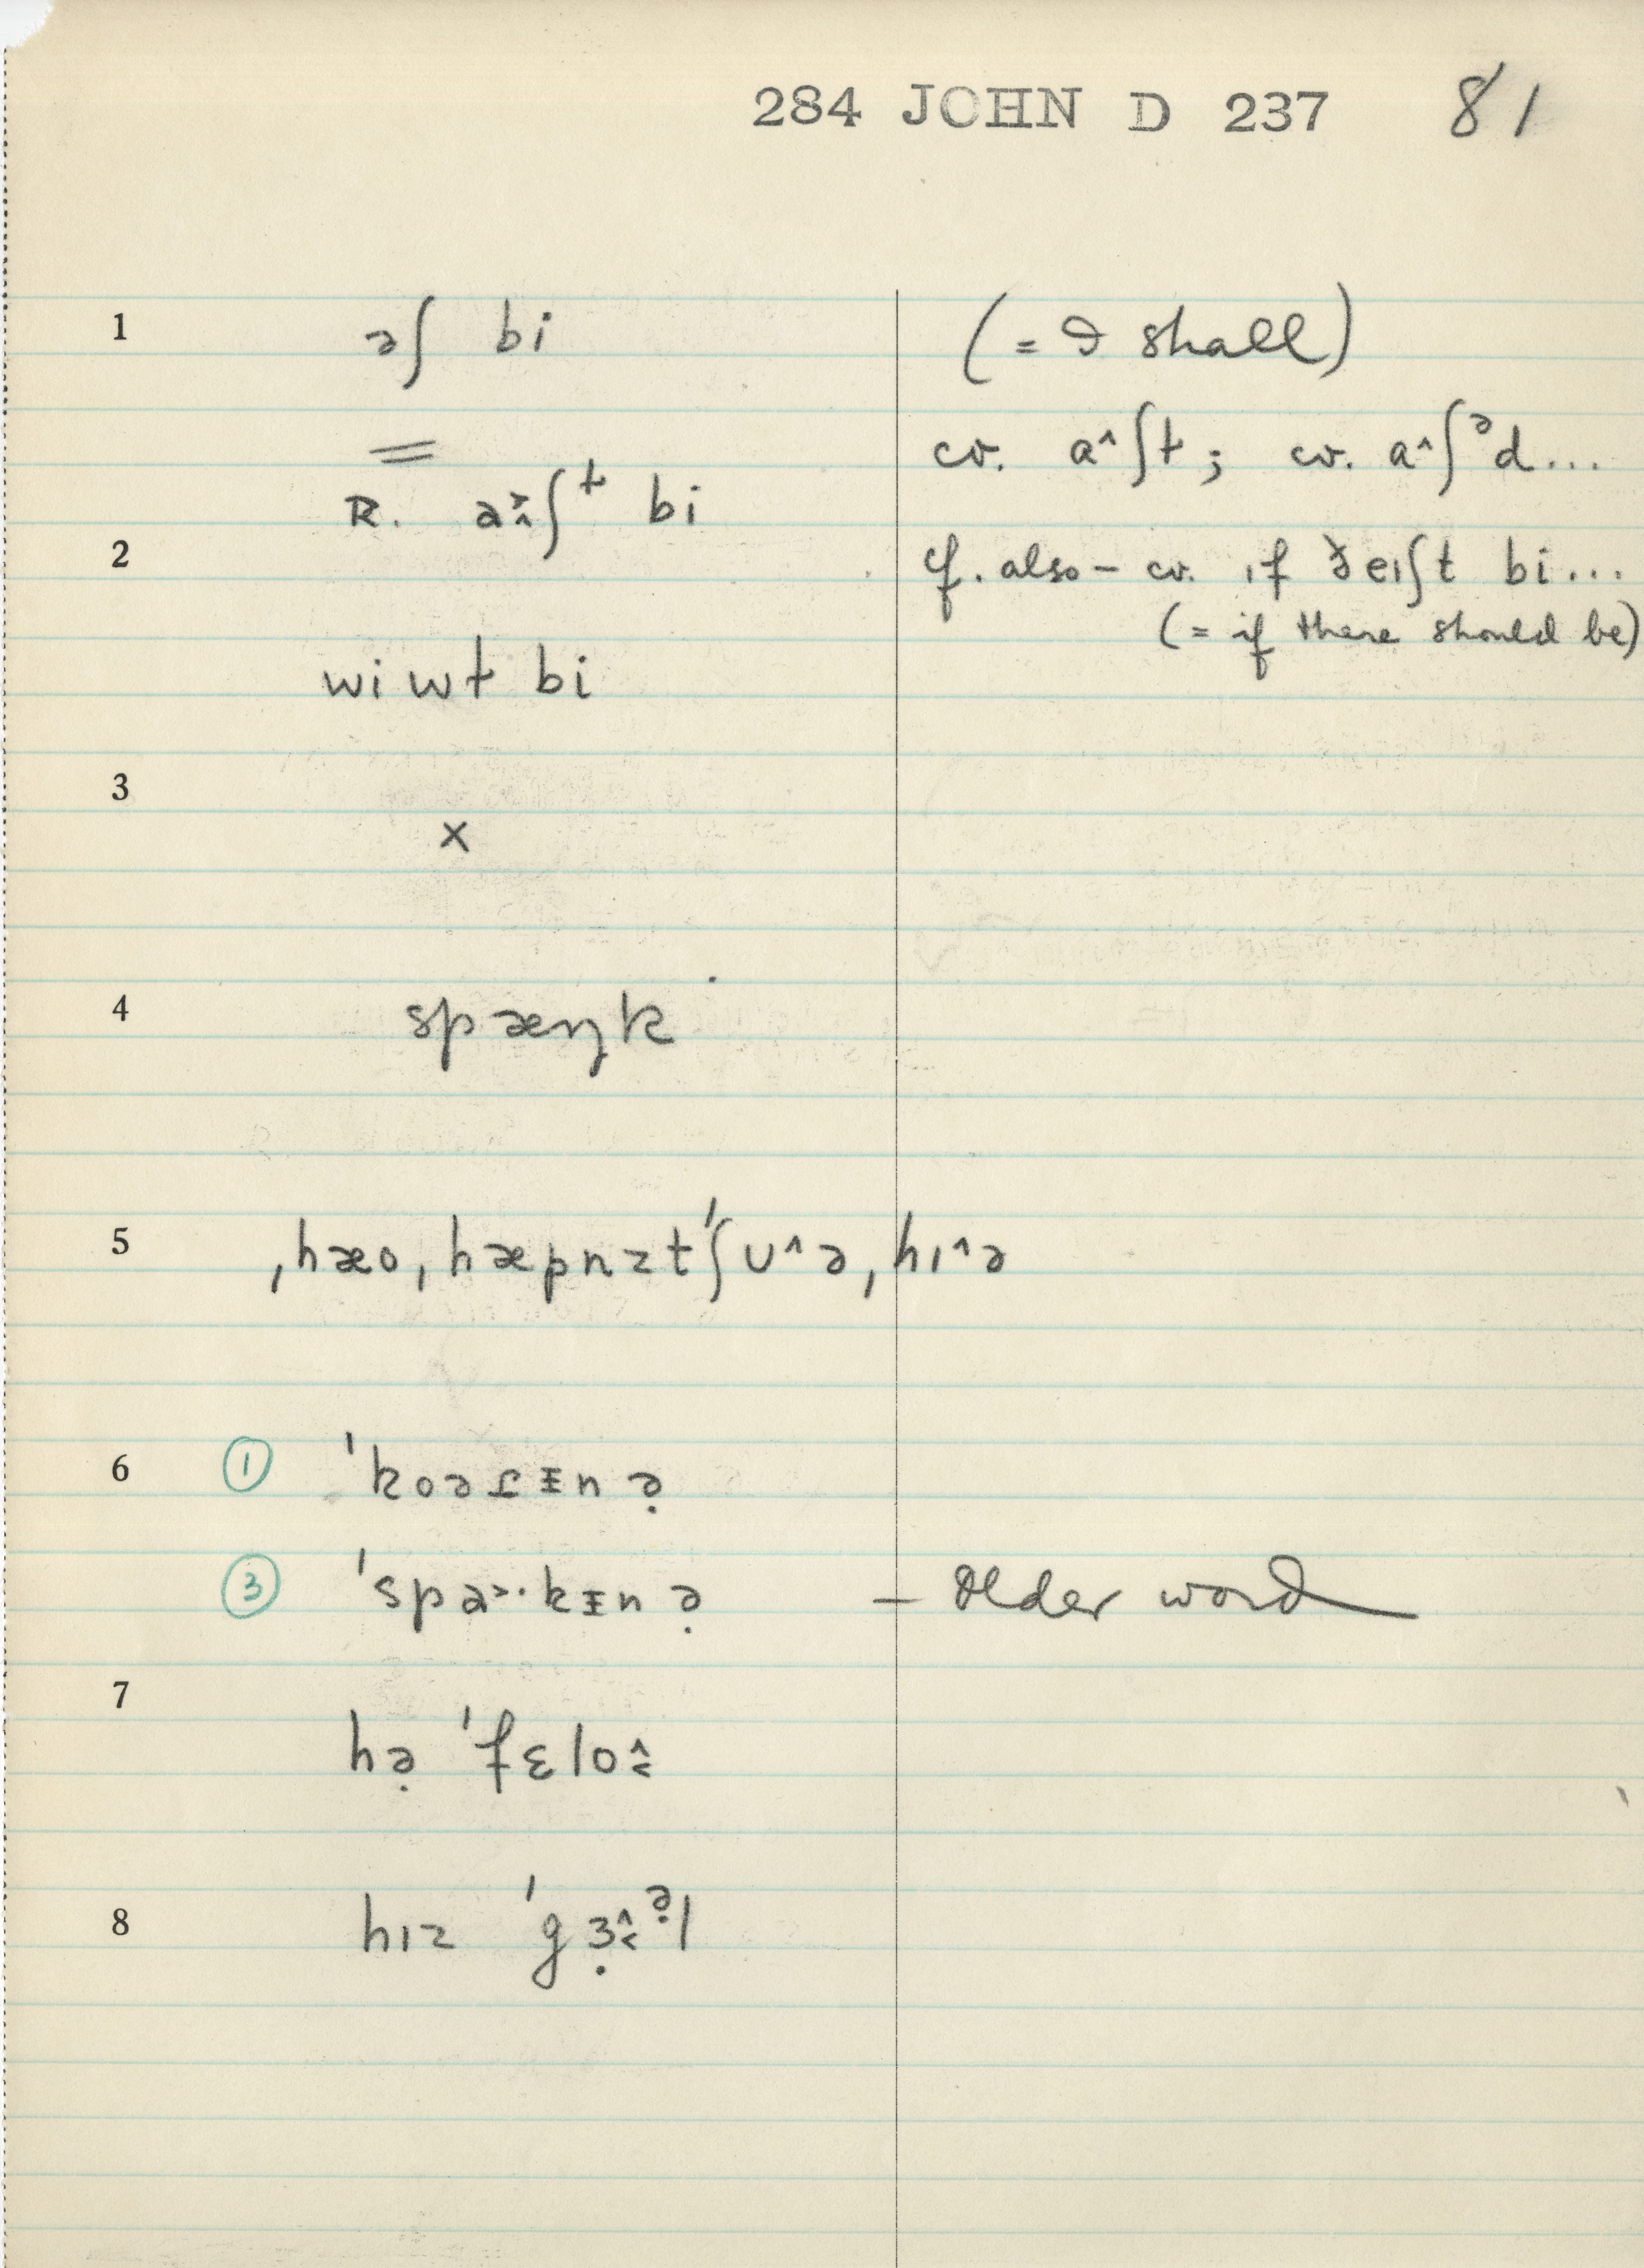 284 JOHN D 237 81
1 əʃ bi (= I shall)
= cv. a^ʃt; cv. a^ʃᵊd...
R. a>^ʃᵗ bi
2 cf. also – cv. ɪf ðeɪʃt bi...
(= if there should be)
wi wt bi
3
x
4 spæŋk
5 ˌhæoˌhæpnzt'ʃʊ^əˌhɪ^ə
6 ① 'koəɾɪnə̣
③ 'spa>·kɪnə̣ – older word
7
hə̣ 'fɛlo^<
8 hɪz 'gɜ̣^<ə̣l